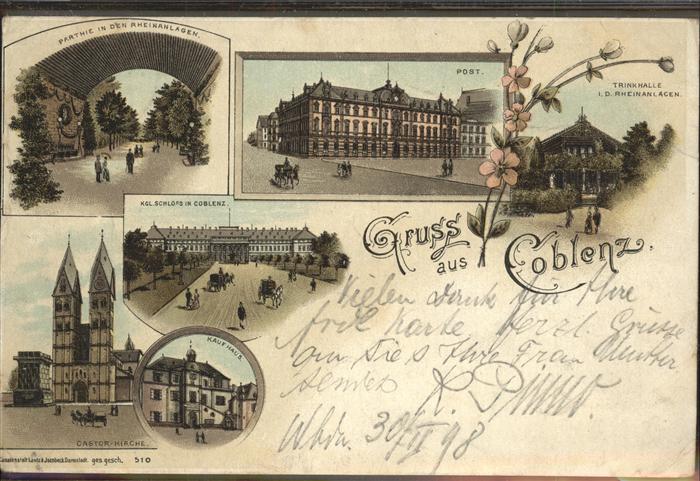 PARTHIE IN DEN RHEINANLAGEN.
POST.
TRINKHALLE
I. D. RHEINANLAGEN.
KGL. SCHLOSS IN COBLENZ.
Gruss
aus
Coblenz.
Vielen Dank für Ihre
Karte. Herzl. Grüsse
an Sie & Ihre Frau Mutter
sendet
30/IV 98
KAUFHAUS.
CASTOR-KIRCHE.
ges. gesch. 510